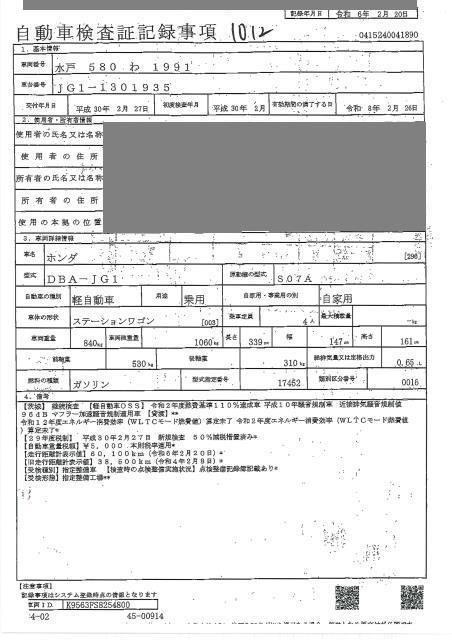 記録年月日 令和 6年 2月 20日
自動車検査証記録事項 1012 0415240041890
1. 基本情報
車両番号 水戸 580 わ 1991
車台番号 JG1-1301935
交付年月日 平成 30年 2月 27日 初度検査年月 平成 30年 2月 有効期間の満了する日 令和 8年 2月 26日
2. 使用者・所有者情報
使用者の氏名又は名称
使用者の住所
所有者の氏名又は名称
所有者の住所
使用の本拠の位置
3. 車両詳細情報
車名 ホンダ [296]
型式 DBA-JG1 原動機の型式 S07A
自動車の種別 軽自動車 用途 乗用 自家用・事業用の別 自家用
車体の形状 ステーションワゴン [003] 乗車定員 4人 最大積載量 -kg
車両重量 840kg 車両総重量 1060kg 長さ 339cm 幅 147cm 高さ 161cm
前軸重 530kg 後軸重 310kg 総排気量又は定格出力 0.65 L
燃料の種類 ガソリン 型式指定番号 17452 類別区分番号 0016
4. 備考
【茨城】 継続検査 【軽自動車OSS】 令和2年度燃費基準110%達成車 平成10年騒音規制車 近接排気騒音規制値
96dB マフラー加速騒音規制適用車 【貨渡】**
令和12年度エネルギー消費効率(WLTCモード燃費値)算定未了 令和2年度エネルギー消費効率(WLTCモード燃費値
)算定未了*
【29年度税制】 平成30年2月27日 新規検査 50%減税措置済み*
【自動車重量税額】 ¥5,000 本則税率適用*
【走行距離計表示値】 60,100km (令和6年2月20日)*
【旧走行距離計表示値】 38,500km (令和4年2月8日)*
【受検種別】指定整備車 【検査時の点検整備実施状況】点検整備記録簿記載あり*
【受検形態】指定整備工場**
【注意事項】
記録事項はシステム登録時点の情報となります
車両ID. K9563PSB254800
4-02 45-00914